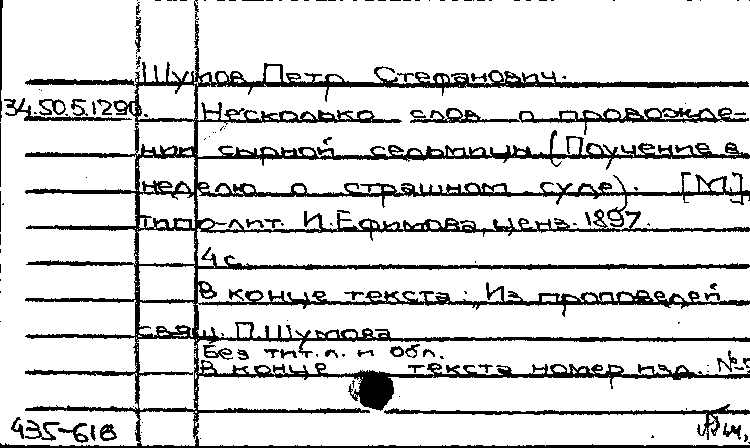 Шумов, Петр Стефанович.
34.50.5.1290. Несколько слов о провожде-
нии сырной седьмицы (Поучение в
неделю о страшном суде). [М.],
типо-лит. И. Ефимова, ценз. 1897.
4 с.
В конце текста: Из проповедей
свящ. П. Шумова
Без тит. л. и обл.
В конце текста номер изд.
435-618